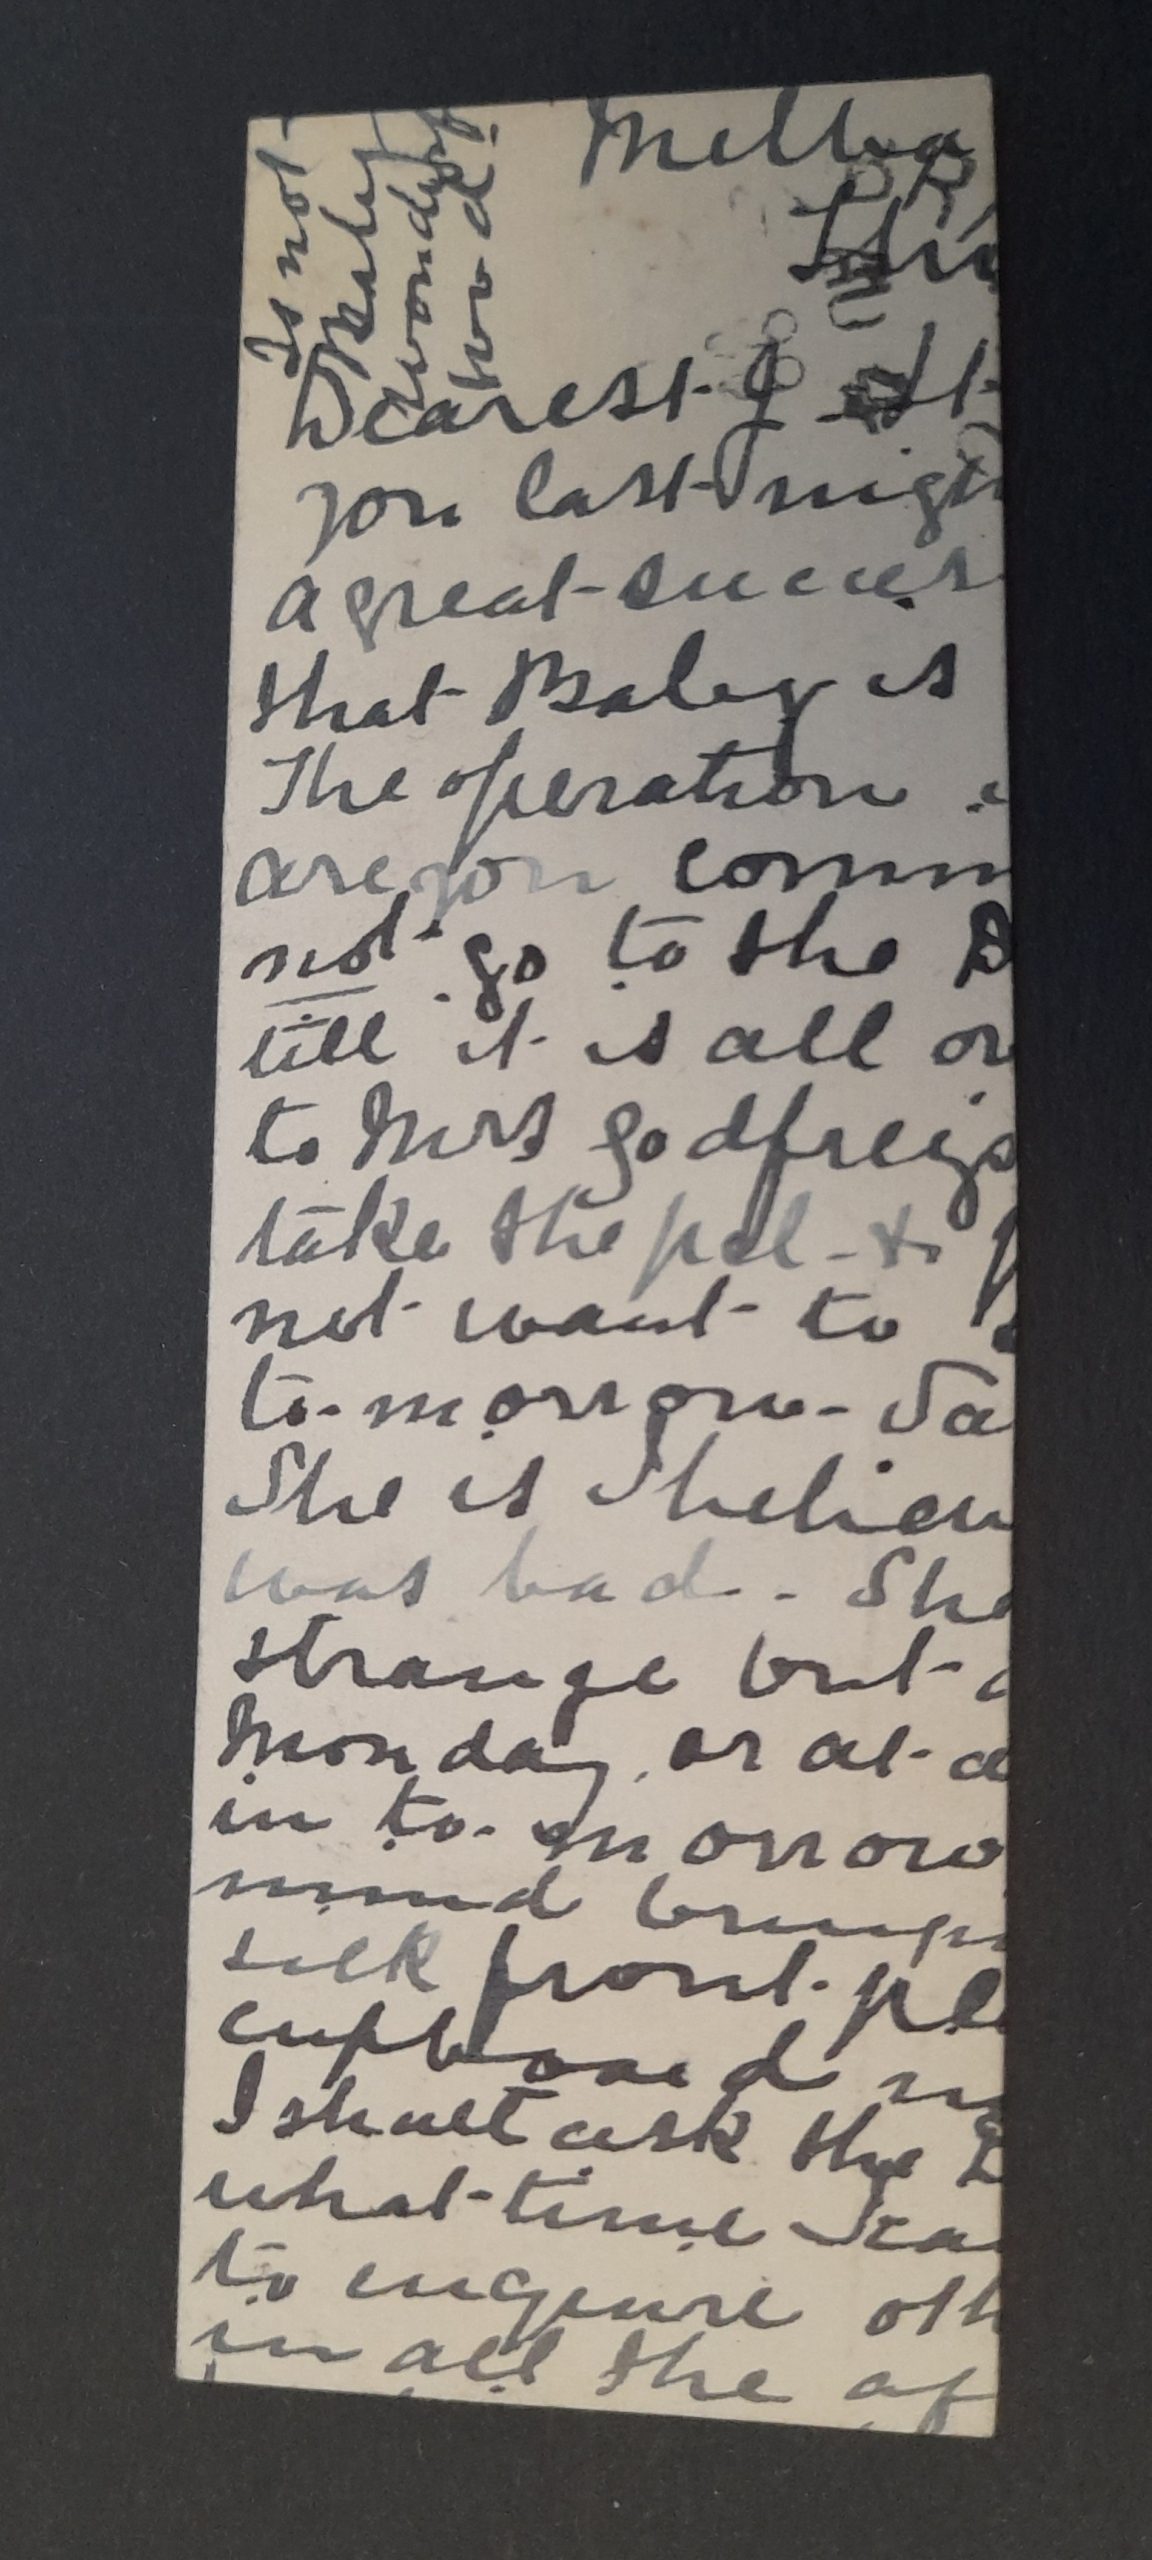 Is not
Baby
wonderf
two d.
Melba
Thu
Dearest J. It
you last night
a great success
that Baby is
The operation
are you comin
not go to the D
till it is all ov
to Mrs Godfreys
take the pel- to
not want to
to-morrow - Sa
She is I believ
was bad - She
strange but- a
Monday, or at- a
in to-morrow
mind bringin
silk front- ple
cupboard in
I shall ask the D
what-time I ca
to enquire oth
in all the af